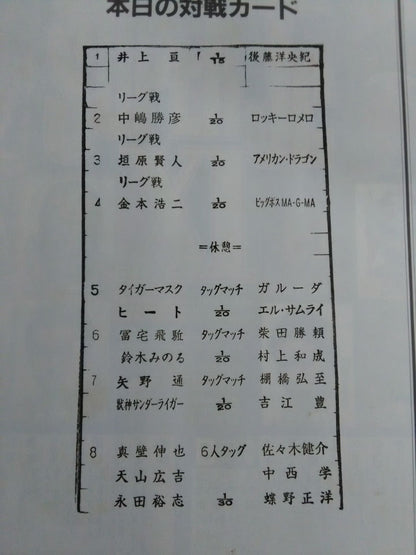 本日の対戦カード
1 井上亘 1/15 後藤洋央紀
リーグ戦
2 中嶋勝彦 1/20 ロッキーロメロ
リーグ戦
3 垣原賢人 1/20 アメリカン・ドラゴン
リーグ戦
4 金本浩二 1/20 ビッグボスMA-G-MA
=休憩=
5 タイガーマスク タッグマッチ ガルーダ
ヒート 1/20 エル・サムライ
6 冨宅飛駈 タッグマッチ 柴田勝頼
鈴木みのる 1/20 村上和成
7 矢野通 タッグマッチ 棚橋弘至
獣神サンダーライガー 1/20 吉江豊
8 真壁伸也 6人タッグ 佐々木健介
天山広吉 中西学
永田裕志 1/30 蝶野正洋